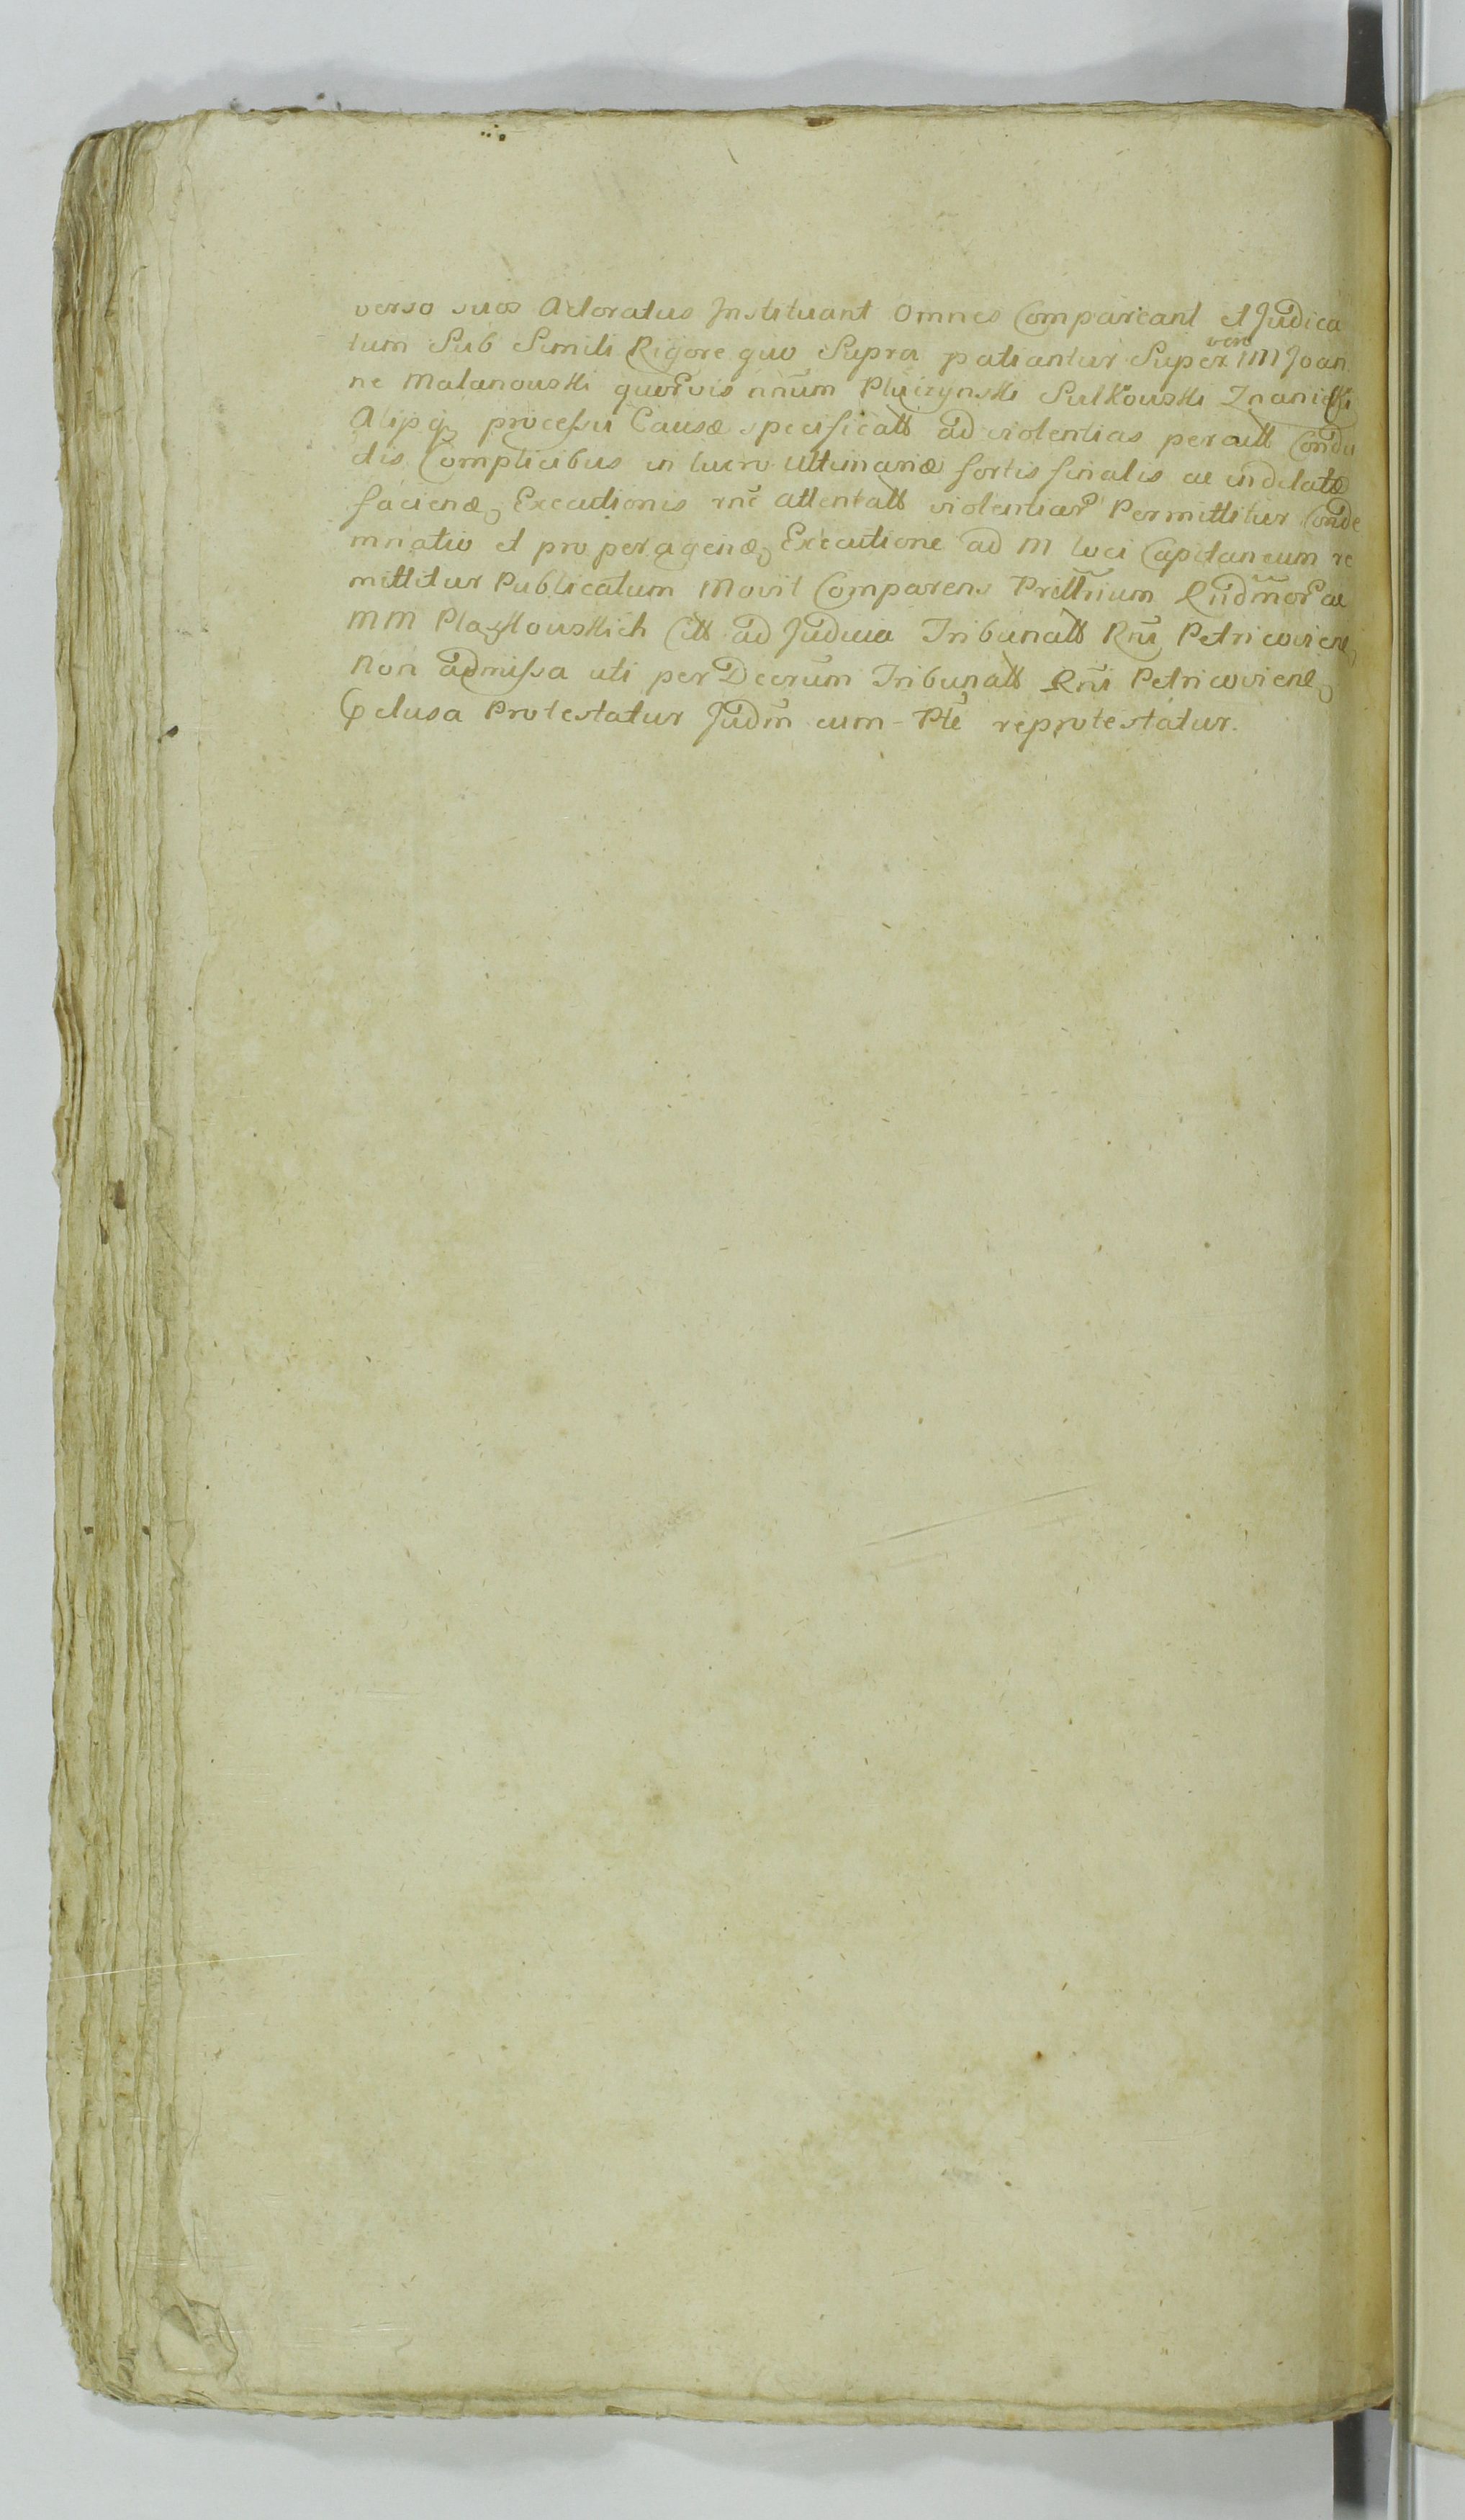 verso suos Actoratus Instituant Omnes Compareant et Judica
tum Sub Simili Rigore quo Supra patiantur Super vero M Joan
ne Malanouski quorvis nnum Pluizynski Sulkouski Znanicki
Aliisq processu Causæ specificatt ad violentias peractt Condu
ctis Complicibus in lucro Ultimariæ sortis finalis ac indilatæ
faciend Executionis rne attentatt violentiar Permittitur Conde
mnatio et pro peragend Executione ad M loci Capitaneum re
mittitur Publicatum Movit Comparens Ministerium Rndmor ac
MM Citt ad Judicia Tribunatt Rni Petricovien
Non admissa uti per Decrum Tribunatt Rni Petricovien
Exclusa Protestatur Judm cum Pte reprotestatur.